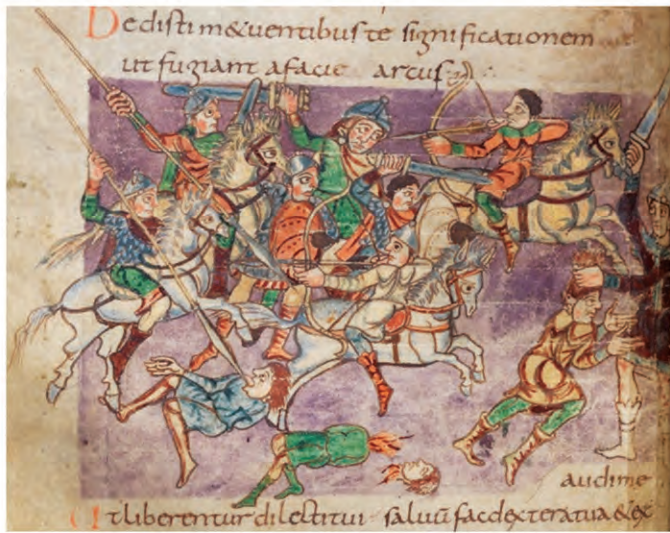 Dedistim&uentibus te significationem
ut fugiant afacie arcus
audime
Utliberentur dilectitui saluū facdexteratua &ex